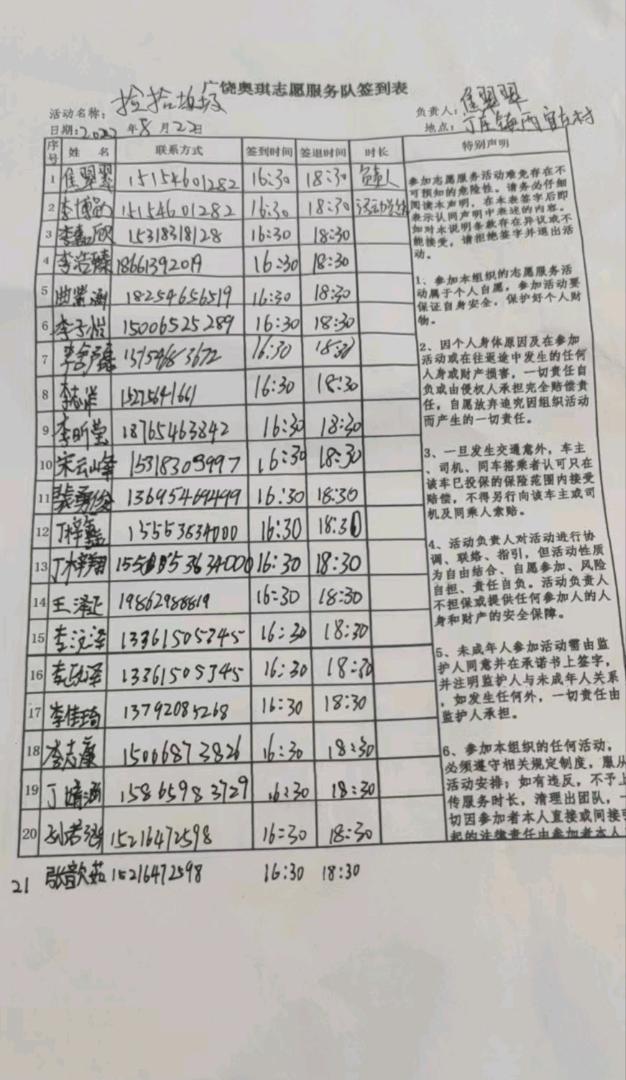 广饶奥琪志愿服务队签到表
活动名称：捡拾垃圾 负责人：
日期：2022年8月22日 地点：丁庄镇西官庄村
序号 姓 名 联系方式 签到时间 签退时间 时长 特别声明
1 15154601282 16:30 18:30 负责人
2 李博 15154601282 16:30 18:30
3 李嘉欣 15318318128 16:30 18:30
4 李浩臻 18661392019 16:30 18:30
5 曲紫涵 18254656519 16:30 18:30
6 李子恺 15006525289 16:30 18:30
7 16:30 18:30
8 16:30 18:30
9 李昕莹 18765463842 16:30 18:30
10 宋云峰 15318303997 16:30 18:30
11 13695469499 16:30 18:30
12 丁梓鑫 15553634000 16:30 18:30
13 丁梓翔 16:30 18:30
14 王泽正 19862988819 16:30 18:30
15 李汶泽 13361505345 16:30 18:30
16 13361505345 16:30 18:30
17 李佳琦 13792085268 16:30 18:30
18 李志康 15066873826 16:30 18:30
19 丁婧涵 15865983729 16:30 18:30
20 15216472598 16:30 18:30
21 张歆茹 15216472598 16:30 18:30
参加志愿服务活动难免存在不
可预知的危险性。请务必仔细
阅读本声明，在本表签字后即
表示认同声明中表述的内容。
如对本说明条款存在异议或不
能接受，请拒绝签字并退出活
动。
1、参加本组织的志愿服务活
动属于个人自愿，参加活动要
保证自身安全，保护好个人财
物。
2、因个人身体原因及在参加
活动或在往返途中发生的任何
人身或财产损害，一切责任自
负或由侵权人承担完全赔偿责
任，自愿放弃追究因组织活动
而产生的一切责任。
3、一旦发生交通意外，车主
、司机、同车搭乘者认可只在
该车已投保的保险范围内接受
赔偿，不得另行向该车主或司
机及同乘人索赔。
4、活动负责人对活动进行协
调、联络、指引，但活动性质
为自由结合、自愿参加、风险
自担、责任自负。活动负责人
不担保或提供任何参加人的人
身和财产的安全保障。
5、未成年人参加活动需由监
护人同意并在承诺书上签字，
并注明监护人与未成年人关系
，如发生任何外，一切责任由
监护人承担。
6、参加本组织的任何活动，
必须遵守相关规定制度，服从
活动安排；如有违反，不予上
传服务时长，清理出团队，一
切因参加者本人直接或间接引
起的法律责任由参加者本人